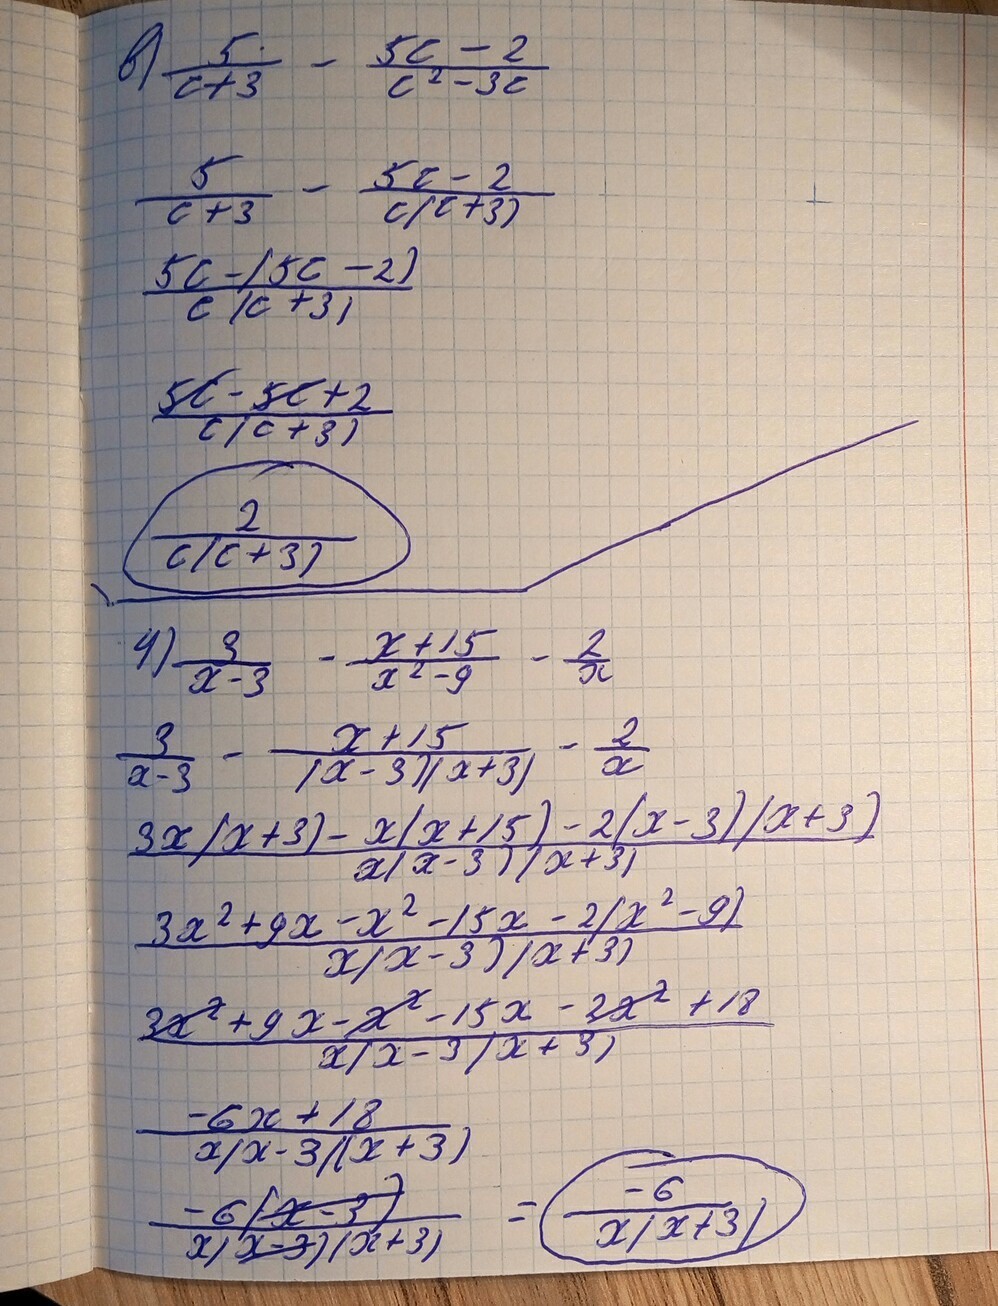 в) 5/(c+3) - (5c-2)/(c²-3c)
5/(c+3) - (5c-2)/(c(c+3))
(5c-(5c-2))/(c(c+3))
(5c-5c+2)/(c(c+3))
2/(c(c+3))
4) 3/(x-3) - (x+15)/(x²-9) - 2/x
3/(x-3) - (x+15)/((x-3)(x+3)) - 2/x
(3x(x+3)-x(x+15)-2(x-3)(x+3))/(x(x-3)(x+3))
(3x²+9x-x²-15x-2(x²-9))/(x(x-3)(x+3))
(3x²+9x-x²-15x-2x²+18)/(x(x-3(x+3))
(-6x+18)/(x(x-3)(x+3))
(-6(x-3))/(x(x-3)(x+3)) = -6/(x(x+3))